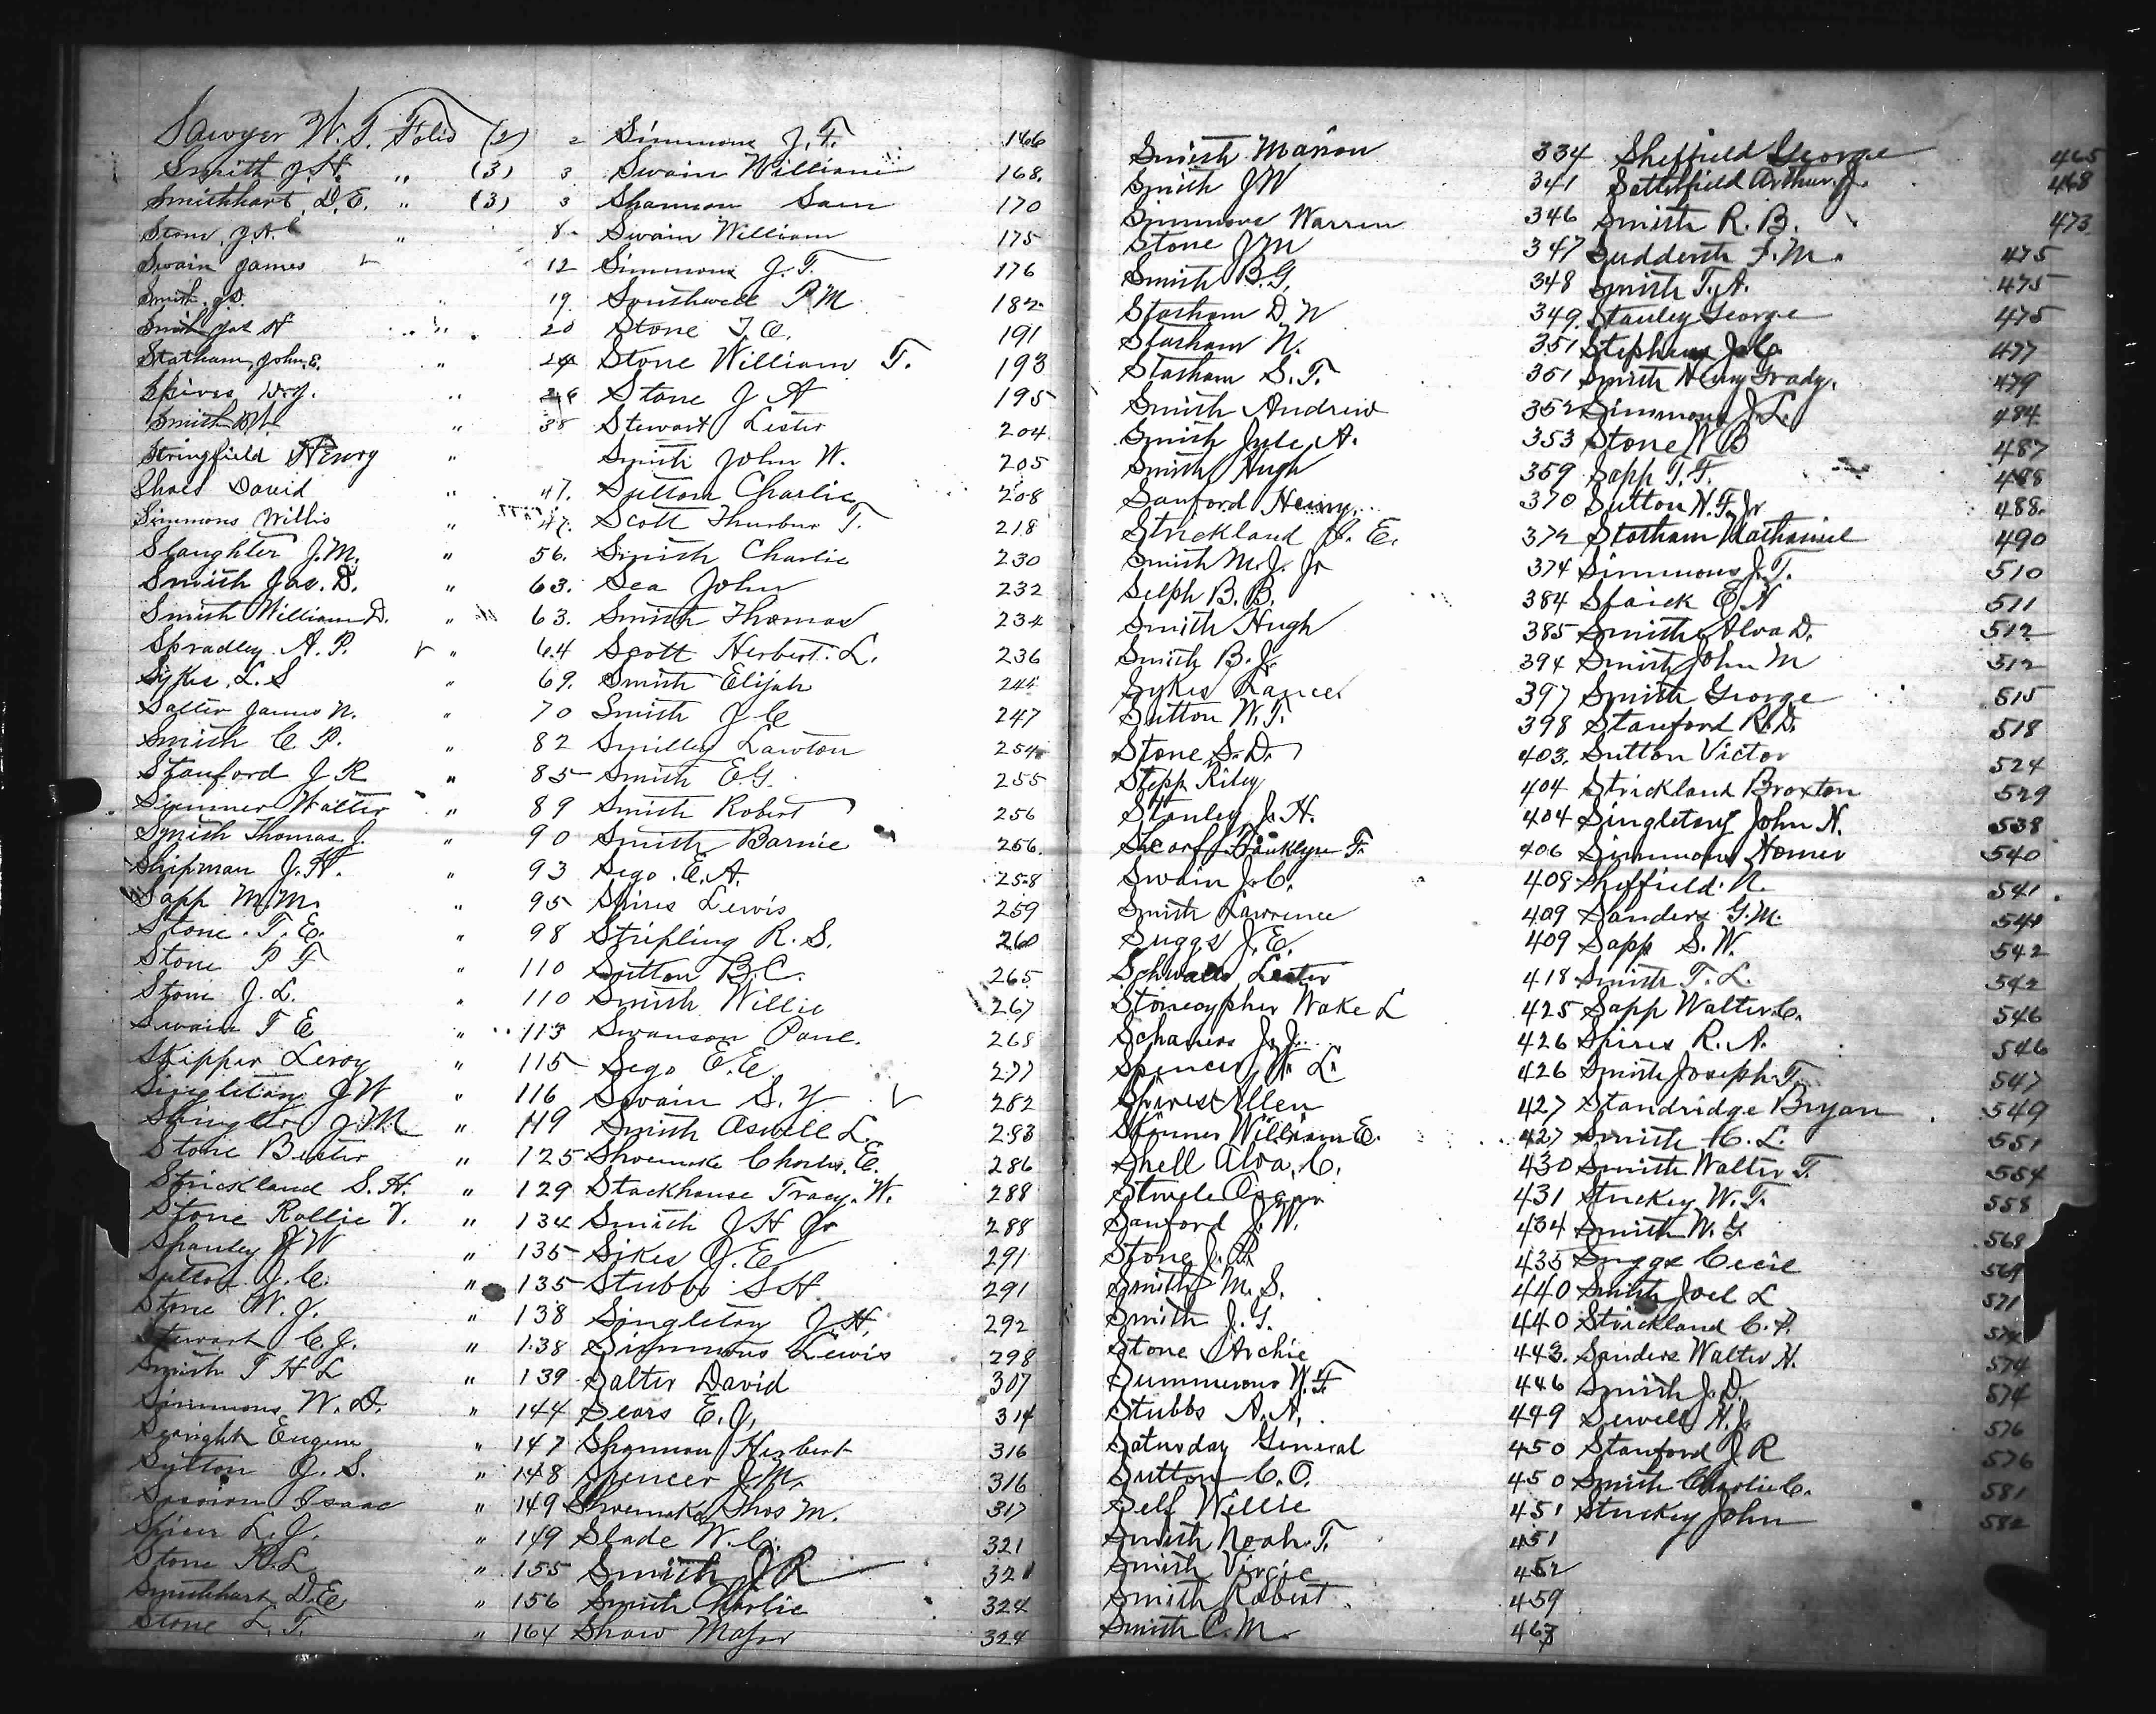 Sawyer W. T. Folio (2) 2
Smith J. H. " (3) 3
Smithhart, D. E. " (3) 3
Stone, J. A. " 8
Swain James 12
Smith J. D. 19
Smith Jas H " 20
Statham, John E. " 24
Spires, W. J. "
Smith " 38
Stringfield Henry "
Shoes David " 47.
Simmons Willis " 47.
Slaughter J. M. " 56.
Smith Jas. D. " 63.
Smith William D. " 63.
Spradley A. P. " 64
Sykes, L. S " 69.
Salter James N. " 70
Smith C. P. " 82
Stanford J R " 85
Sumner Walter " 89
Smith Thomas J. " 90
Shipman J. H. " 93
Sapp M. M. " 95
Stone. T. E. " 98
Stone P T " 110
Stone J. L. " 110
Swain T E " 113
Skipper Leroy " 115
Singletary J W " 116
Shingler J. M " 119
Stone Buster " 125
Strickland S. H. " 129
Stone Rollie V. " 134
Stanley W " 135
Sutton J. C. " 135
Stone W. J. " 138
Stewart C. J. " 138
Smith T H L " 139
Simmons W. D. " 144
Seright Eugene " 147
Sutton J. S. " 148
Session Isaac " 149
Spires L. J. " 149
Stone R. L " 155
Smithhart D. E " 156
Stone L. T. " 164
Simmons J. T. 166
Swain William 168.
Shannon Sam 170
Swain William 175
Simmons J. T. 176
Southwell P M 182
Stone T. C. 191
Stone William T. 193
Stone J A 195
Stewart Lester 204
Smith John W. 205
Sutton Charlie 208
Scott Thurbur T. 218
Smith Charlie 230
Sea John 232
Smith Thomas 234
Scott Herbert. L. 236
Smith Elijah 244
Smith J C 247
Smilley Lawton 254
Smith E. G. 255
Smith Robert 256
Smith Barnie 256.
Sego. E. A. 258
Spires Lewis 259
Stripling R. S. 260
Sutton B. C. 265
Smith Willie 267
Swanson Paul. 268
Sego E. E. 277
Swain S. Y 282
Smith Aswell L. 283
Shoemake Charles. E. 286
Stackhouse Tracy. W. 288
Smith J H Jr 288
Sikes J. E 291
Stubbs S H. 291
Singletary J. H. 292
Simmons Lewis 298
Salter David 307
Sears E. J. 314
Shannon Herbert 316
Spencer J. M. 316
Shoemake Thos M. 317
Slade W. C. 321
Smith J R 321
Smith Charlie 324
Shaw Major 324
Smith Marion 334
Smith J W 341
Simmons Warren 346
Stone J M 347
Smith B. G. 348
Statham D. W 349.
Statham N. 351
Statham S. T. 351
Smith Andrew 352
Smith Jule A. 353
Smith Hugh 359
Sanford Henry. 370
Strickland J. E. 372
Smith M. J. Jr 374
Selph B. B. 384
Smith Hugh 385
Smith B. J. 394
Sykes Lance 397
Sutton W. T. 398
Stone S. D. 403.
Stepp Riley 404
Stanley J. H. 404
Scarf Franklyn F. 406
Swain J. C. 408
Smith Lawrence 409
Suggs J. E. 409
Schwalls Lester 418
Stonecypher Wake L 425
Schaners J. J. 426
Spencer W. L. 426
Spires Allen 427
Skinner William E. 427
Shell Alva. C. 430
Steele Oscar 431
Sanford J. W. 434
Stone J. R. 435
Smith M. S. 440
Smith J. G. 440
Stone Archie 443.
Summerour W. F. 446
Stubbs A. A. 449
Saturday General 450
Sutton C. O. 450
Self Willie 451
Smith Noah. T. 451
Smith Virgie 452
Smith Robert 459
Smith C. M. 463
Sheffield George 465
Satterfield Arthur J. 468
Smith R. B. 473
Sudderth F. M. 475
Smith T. A. 475
Stanley George 475
Stephens J. C. 477
Smith Henry Grady. 479
Simmons J. L. 484
Stone N B 487
Sapp T. F. 488
Sutton H. F. Jr 488.
Statham Nathaniel 490
Simmons J. T. 510
E. N 511
Smith Alva D. 512
Smith John M 512
Smith George 515
Stanford R. D. 518
Sutton Victor 524
Strickland Broxton 529
Singletary John H. 538
Simmons Homer 540
Sheffield. N. 541
Sanders G. M. 541
Sapp S. W. 542
Smith T. L. 542
Sapp Walter C. 546
Spires R. A. 546
Smith Joseph T. 547
Standridge Bryan 549
Smith H. L. 551
Smith Walter T. 554
Stuckey W. T. 558
Smith W. G. 568
Suggs Cecil 569
Smith Joel L 571
Strickland C. P. 574
Sanders Walter H. 574
Smith J. D. 574
Sewell H. J. 576
Stanford J R 576
Smith Charlie C. 581
Stuckey John 582